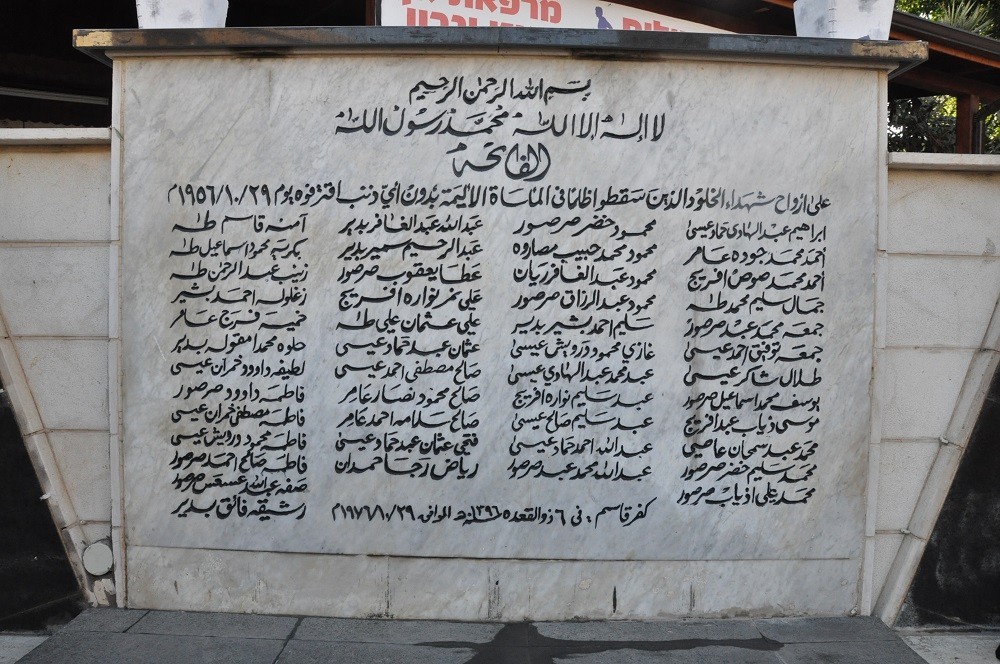 بسم الله الرحمن الرحيم
لا اله الا الله محمد رسول الله
الفاتحة
على ارواح شهداء الخلود الذين سقطوا ظلما في المأساة الاليمة بدون اي ذنب اقترفوه يوم ١٩٥٦/١٠/٢٩م
ابراهيم عبد الهادي حماد عيسى
أحمد محمد جوده عامر
أحمد محمد صوص افريج
جمال سليم محمد طه
جمعه محمد عبد صرصور
جمعه توفيق احمد عيسى
طلال شاكر عيسى
يوسف محمد اسماعيل صرصور
موسى ذياب عبد افريج
محمد عبد سمحان عاصي
محمد سليم خضر صرصور
محمد علي اذياب صرصور
محمود خضر صرصور
محمود محمد حبيب مصاروه
محمود عبد الغافر ريان
محمود عبد الرزاق صرصور
سليم احمد بشير بدير
غازي محمود درويش عيسى
عبد محمد عبد الهادي عيسى
عبد سليم نواره افريج
عبد سليم صالح عيسى
عبد الله احمد حماد عيسى
عبد الله محمد عبد صرصور
عبد الله عبد الغافر بدير
عبد الرحيم سمير بدير
عطا يعقوب صرصور
علي نمر نواره افريج
علي عثمان علي طه
عثمان عبد حماد عيسى
صالح مصطفى احمد عيسى
صالح محمود نصار عامر
صالح سلامه احمد عامر
فتحي عثمان عبد حماد عيسى
رياض رجا حمدان
آمنه قاسم طه
بكريه محمود اسماعيل طه
زينب عبد الرحمن طه
زغلوله احمد بشير
خميه فرج عامر
حلوه محمد
لطيفه داوود عيسى
فاطمه داوود صرصور
فاطمه مصطفى عيسى
فاطمه محمود درويش عيسى
فاطمه صالح احمد صرصور
صفه عبد الله صرصور
رشيقه فائق بدير
كفر قاسم : في ٦ ذو القعده سنة ١٣٩٦هـ الموافق ١٩٧٦/١٠/٢٩م